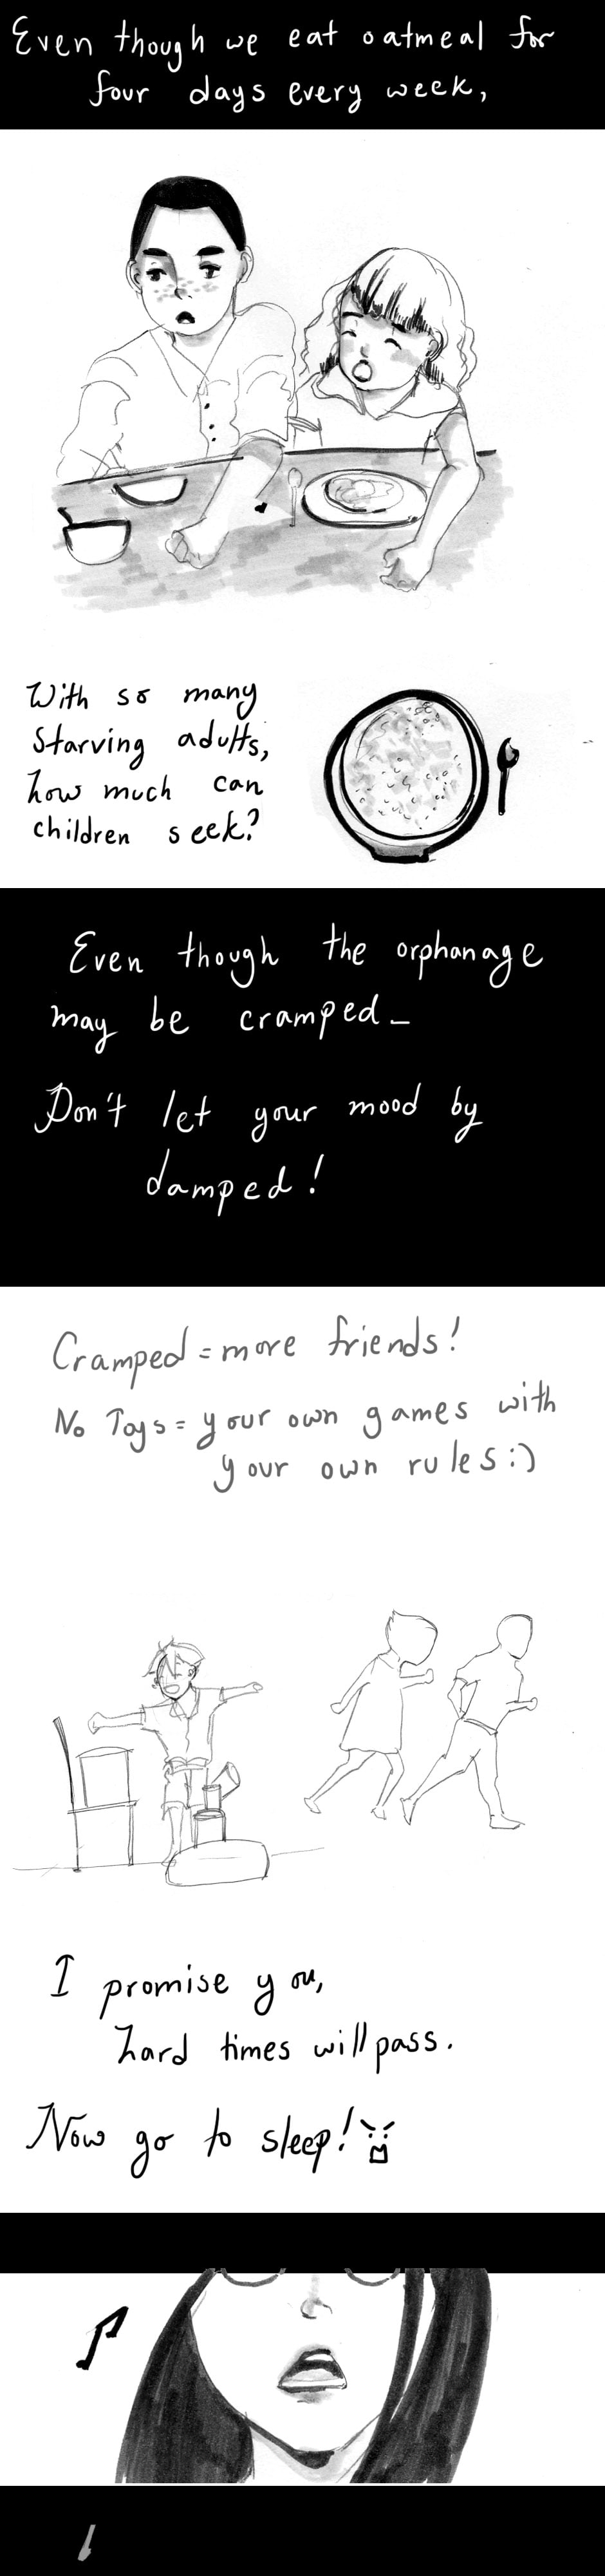 Even though we eat oatmeal for
four days every week,
With so many
starving adults,
how much can
children seek?
Even though the orphanage
may be cramped_
Don't let your mood by
damped!
Cramped = more friends!
No Toys = your own games with
your own rules :)
I promise you,
hard times will pass.
Now go to sleep!